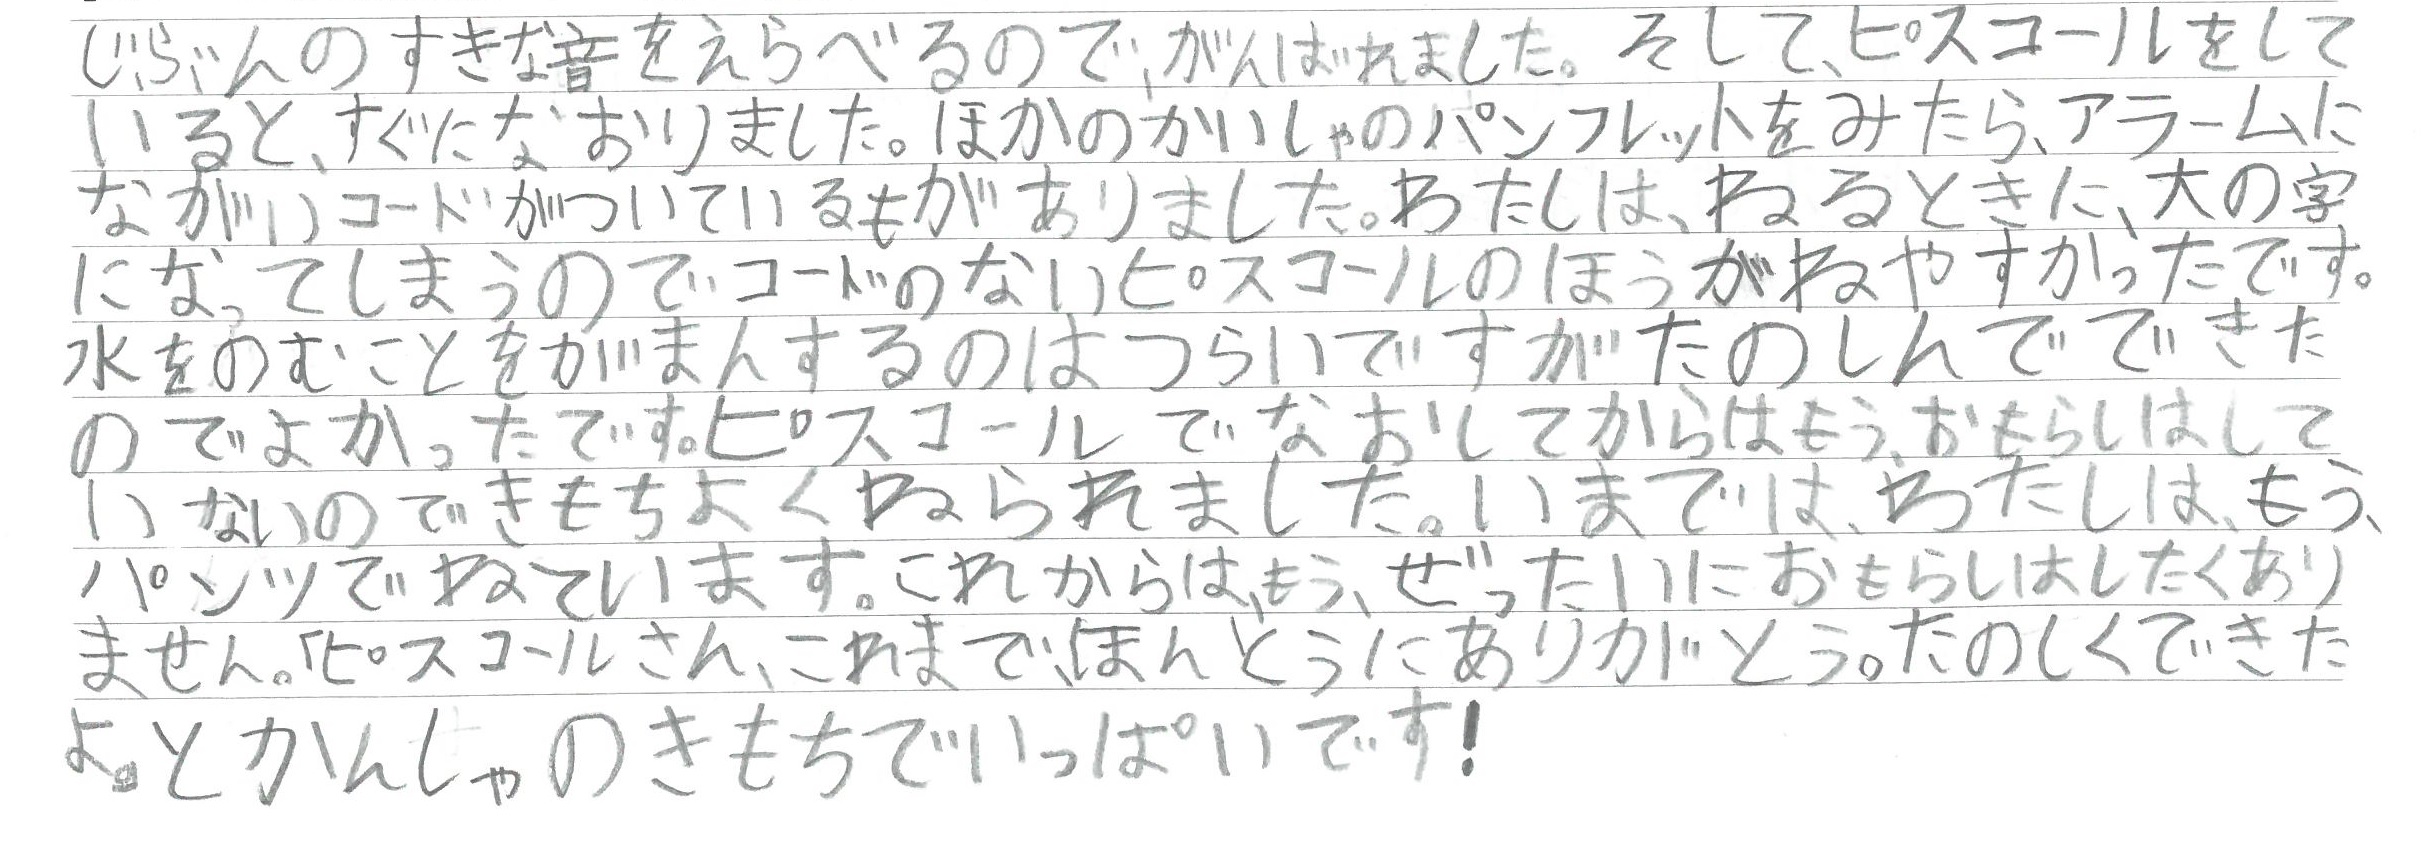 じぶんのすきな音をえらべるので、がんばれました。そして、ピスコールをして
いると、すぐになおりました。ほかのかいしゃのパンフレットをみたら、アラームに
ながいコードがついているもがありました。わたしは、ねるときに、大の字
になってしまうのでコードのないピスコールのほうがねやすかったです。
水をのむことをがまんするのはつらいですがたのしんでできた
のでよかったです。ピスコールでなおしてからはもう、おもらしはして
いないのできもちよくねられました。いまでは、わたしは、もう、
パンツでねています。これからは、もう、ぜったいにおもらしはしたくあり
ません。「ピスコールさん、これまで、ほんとうにありがとう。たのしくできた
よ。とかんしゃのきもちでいっぱいです!